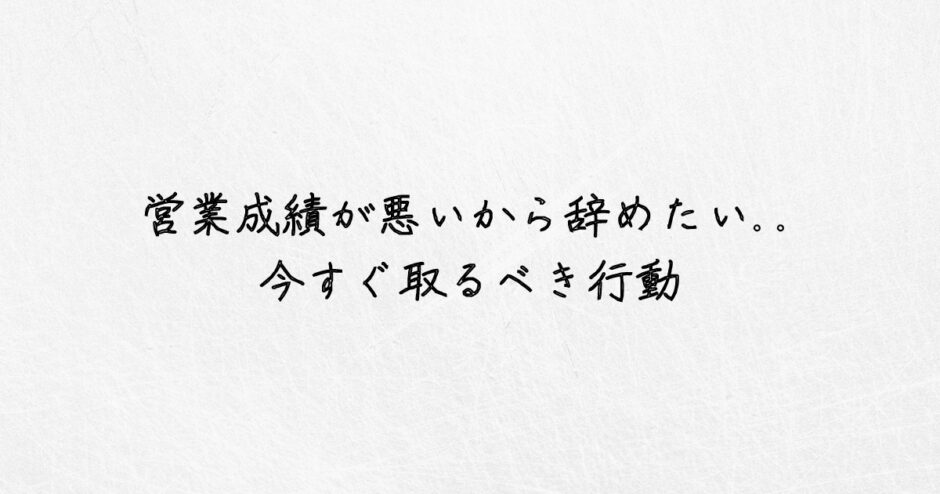 営業成績が悪いから辞めたい。。
今すぐ取るべき行動